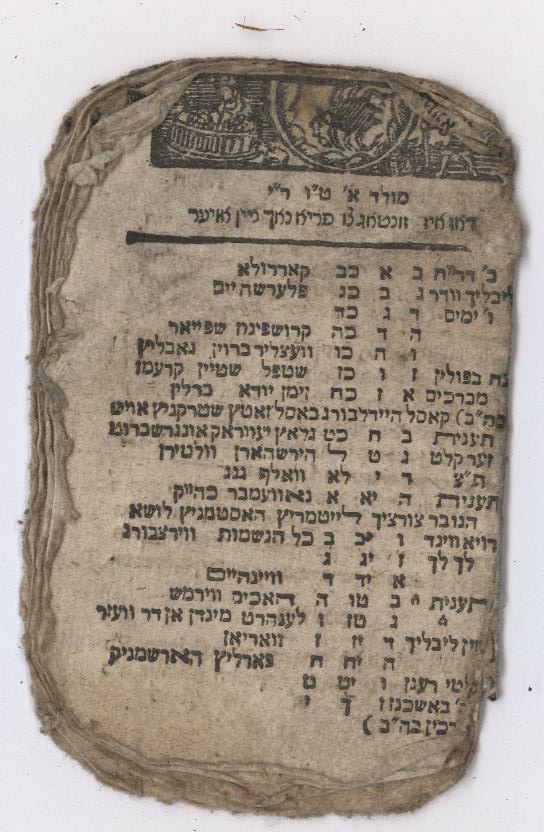 מולד א' ט"ו ר"י
זונטאג צו פריא נאך מיין אויער
ב' דר"ח ב א כב קארדולא
ליבליך וודר ג ב כג פלערשהיים
ו' ימים ד ג כד
ה ד כה קרושפינוז שפייאר
ו ה כו וועצליר ברוין גאבליץ
בפולין ז ו כז שטפל שטיין קרעמז
מברכים א ז כח זימן יודא ברלין
בה"ב) קאסל היידלבורג באסל זאטץ שטרקניץ אויש
תענית ב ח כט גלאץ
זער קלט ג ט ל הירשהארן וולטירן
ת"צ ד י לא וואלף
תענית ה יא א נאוועמבר כהי"ק
הגובר צורציך לייטמריץ האסטמניץ לושא
ווינד ו יב ב כל הנשמות ווירצבורג
לך לך ז יג ג
א יד ד וויינהיים
תענית ב טו ה האכים ווירמש
ג טז ו לענהרט מינדן אן דר וועזר
ליבליך ד יז ז זוואריאן
ה יח ח פארליץ הארשמניק
רעגן ו יט ט
באשכנז ז כ י
בה"ב )